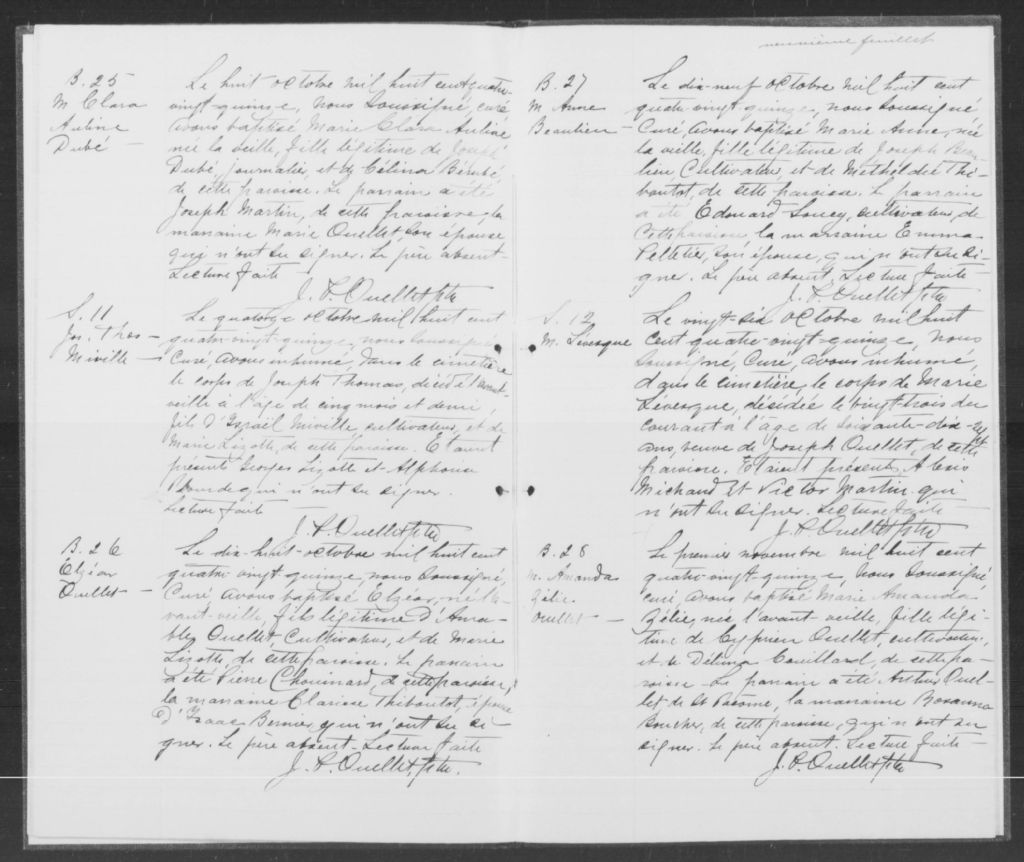 B. 25
M Clara
Auline
Dubé —
Le huit octobre mil huit cent quatre-
vingt-quinze, nous soussigné, curé
avons baptisé Marie Clara Auline
née la veille, fille légitime de Joseph
Dubé, journalier, et de Célina Bérubé
de cette paroisse. Le parrain a été
Joseph Martin, de cette paroisse, la
marraine Marie Ouellet, son épouse
qui n'ont su signer. Le père absent
Lecture faite —
J. P. Ouellet ptre
S. 11
Jos. Thos —
Miville —
Le quatorze octobre mil huit cent
quatre-vingt-quinze, nous soussigné
Curé, avons inhumé, dans le cimetière
le corps de Joseph Thomas, décédé l'avant-
veille à l'âge de cinq mois et demi,
fils d'Israël Miville, cultivateur, et de
Marie Lizotte, de cette paroisse. Etaient
présents Georges Lizotte et Alphonse
qui n'ont su signer.
Lecture faite —
J. P. Ouellet ptre
B. 26
Elzéar
Ouellet —
Le dix-huit octobre mil huit cent
quatre-vingt-quinze, nous soussigné,
Curé avons baptisé Elzéar, né l'a-
vant-veille, fils légitime d'Ama-
ble Ouellet, Cultivateur, et de Marie
Lizotte, de cette paroisse. Le parrain
a été Pierre Chouinard, de cette paroisse,
la marraine Clarisse Thiboutot, épouse
d'Isaac Bernier, qui n'ont su si-
gner. Le père absent. Lecture faite
J. P. Ouellet, ptre.
feuillet
B. 27
M. Anne
Beaulieu —
Le dix-neuf octobre mil huit cent
quatre-vingt-quinze, nous soussigné
Curé, avons baptisé Marie Anne, née
la veille, fille légitime de Joseph Beau-
lieu Cultivateur, et de Methèldée Thi-
boutot, de cette paroisse. Le parrain
a été Edouard Soucy, cultivateur, de
cette paroisse la marraine Emma
Pelletier, son épouse, qui n'ont su si-
gner. Le père absent. Lecture faite
J. P. Ouellet ptre
S. 12
M. Lévesque
Le vingt-six octobre mil huit
cent quatre-vingt-quinze, nous
soussigné, Curé, avons inhumé,
dans le cimetière, le corps de Marie
Lévesque, décédée le vingt-trois du
courant à l'âge de soixante-
ans, veuve de Joseph Ouellet, de cette
paroisse. Etaient présents Alexis
Michaud et Victor Martin qui
n'ont su signer. Lecture faite —
J. P. Ouellet ptre
B. 28
M. Amanda
Zélie
Ouellet —
Le premier novembre mil huit cent
quatre-vingt-quinze, nous soussigné,
curé avons baptisé Marie Amanda
Zélie, née l'avant-veille, fille légi-
time de Cyprien Ouellet, cultivateur,
et de Délima Couillard, de cette pa-
roisse. Le parrain a été Arthur Ouel-
let de St Pacôme, la marraine Rosanna
Boucher, de cette paroisse, qui n'ont su
signer. Le père absent. Lecture faite —
J. P. Ouellet ptre